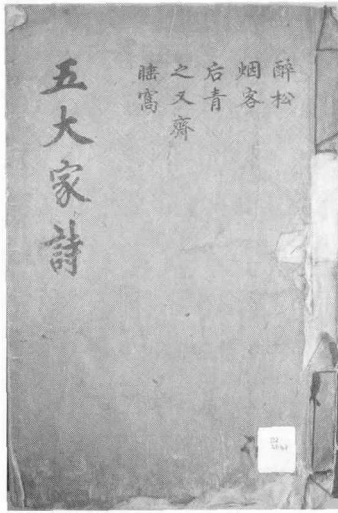 醉松
烟客
后青
之又齋
睡窩
五大家詩